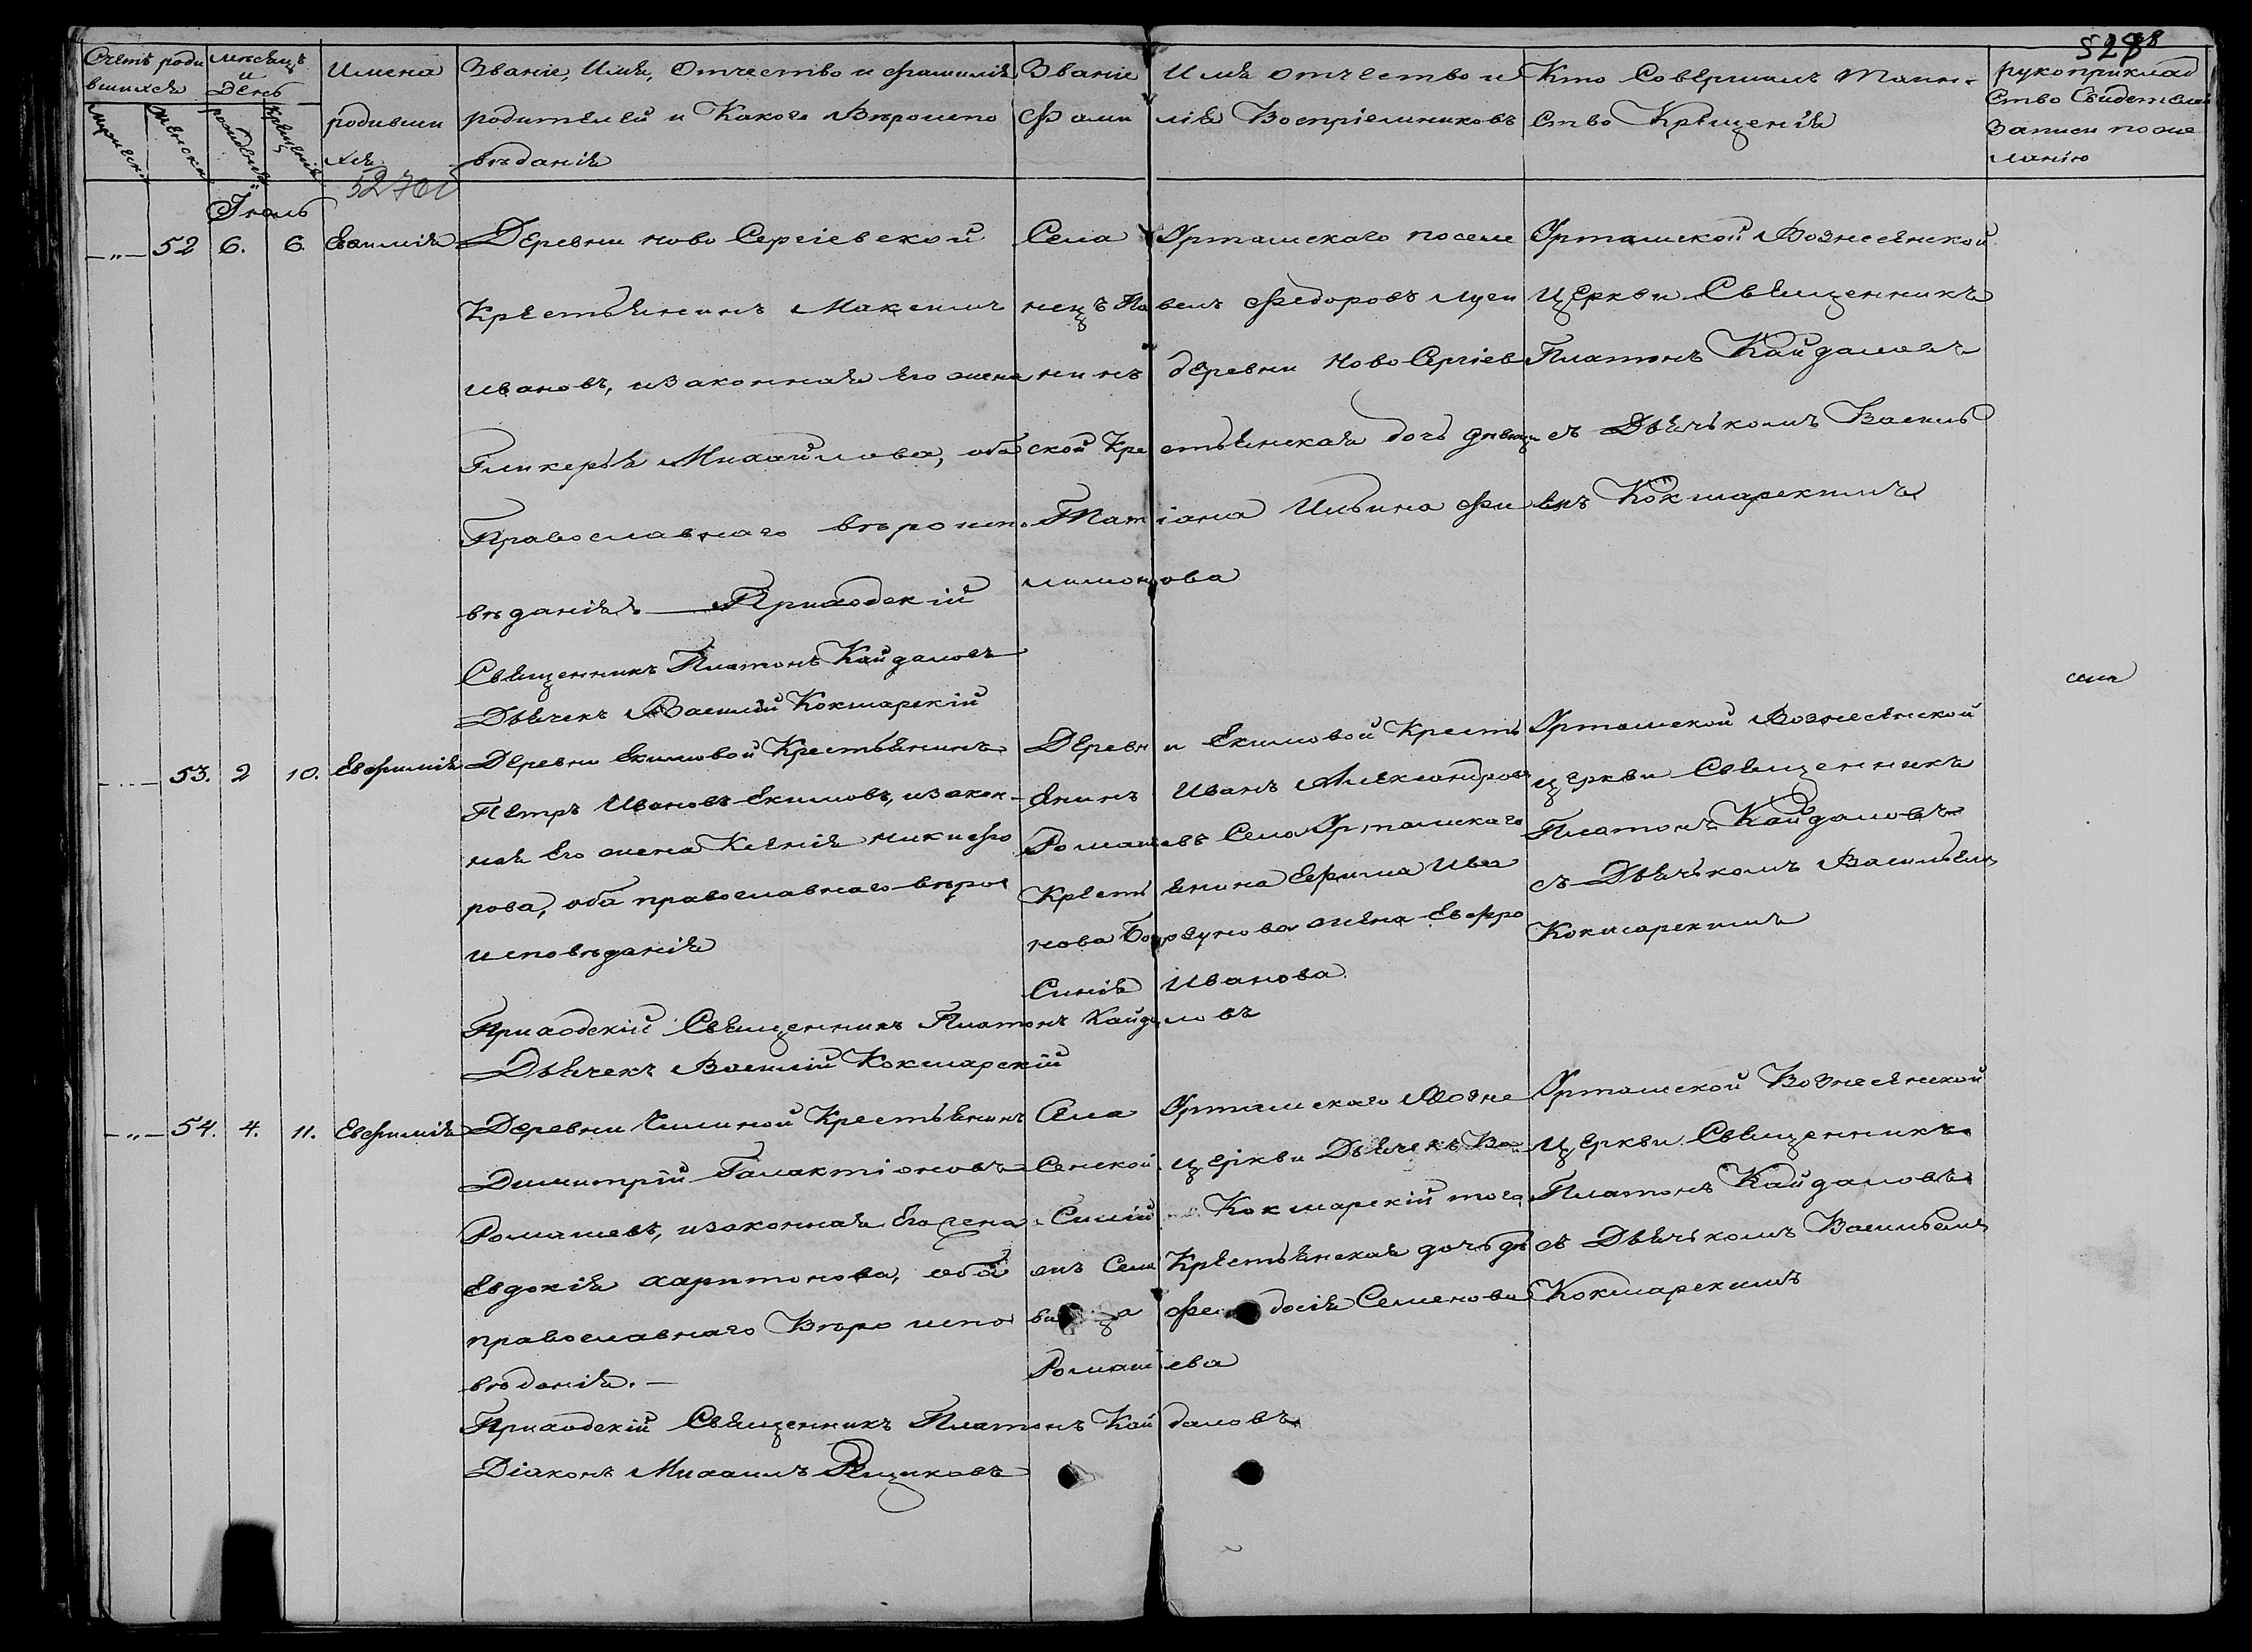 528
Счетъ роди
вшихся
Мужеска
Женска
месяцъ
и
день
рожденія
крещенія
Имена
родивши
хся
Званіе, Имя, Отчество и Фамилія
родителей и Какого Вероиспо
ведания
Званіе Имя Отчество и
Фамилія Воспріемниковъ
Кто Совершалъ Таин-
Ство Крещенія
рукоприклад
Ство Свидетелей
Записи по же
ланію
Іюль
52 6. 6.
Деревни Ново Сергіевской
Крестьянинъ Максимъ
Ивановъ, и законная Его жена
Гликерья Михайлова, оба
Православнаго вероиспо
веданія. Приходскій
Священникъ Платонъ Кайдаловъ
Дьячекъ Василій Кокшарскій
Села Урташскаго поселе
нецъ Павелъ Федоровъ
деревни Ново Сергіев
ской Крестьянская дочь девица
Татіана Ильина Фи
лимонова
Урташской Вознесенской
Церкви Священникъ
Платонъ Кайдаловъ
съ Дьячькомъ Василь
емъ Кокшарскимъ
53. 2 10. Евфимія
Деревни Екимовой Крестьянинъ
Петръ Ивановъ Екимовъ, и закон-
ная Его жена Ксенія Никифо
рова, оба православнаго веро
исповеданія
Приходскій Священникъ Платонъ Кайдаловъ
Дьячекъ Василій Кокшарскій
Деревни Екимовой Кресть
янинъ Иванъ Александровъ
Ромашевъ Села Урташскаго
Крестьянина Ефима Ива
нова жена Евфро
Синія Иванова.
Урташской Вознесенской
церкви Священникъ
Платонъ Кайдаловъ
съ Дьячькомъ Васильемъ
Кокшарскимъ
54. 4. 11. Евфимія
Деревни Крестьянинъ
Димитрій Галактіоновъ
Ромашевъ, и законная Его жена
Евдокія Харитонова, оба
православнаго Вероиспо
веданія. —
Приходскій Священникъ Платонъ Кайдаловъ
Діаконъ Михаилъ
Села Урташскаго Возне
Сенской церкви Дьячекъ Ва
Силій Кокшарскій того
Крестьянская дочь де
вица Феодосія Семенова
Ромашева
Урташской Вознесенской
Церкви Священникъ
Платонъ Кайдаловъ
съ Дьячькомъ Васильемъ
Кокшарскимъ